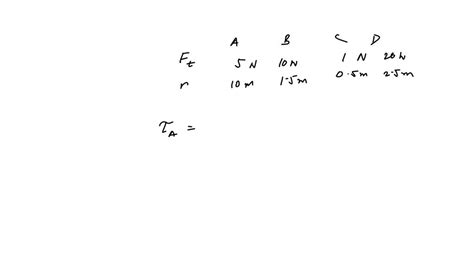 A B C D
Ft 5 N 10 N 1 N 20 N
r 10 m 1.5 m 0.5 m 2.5 m
τA =